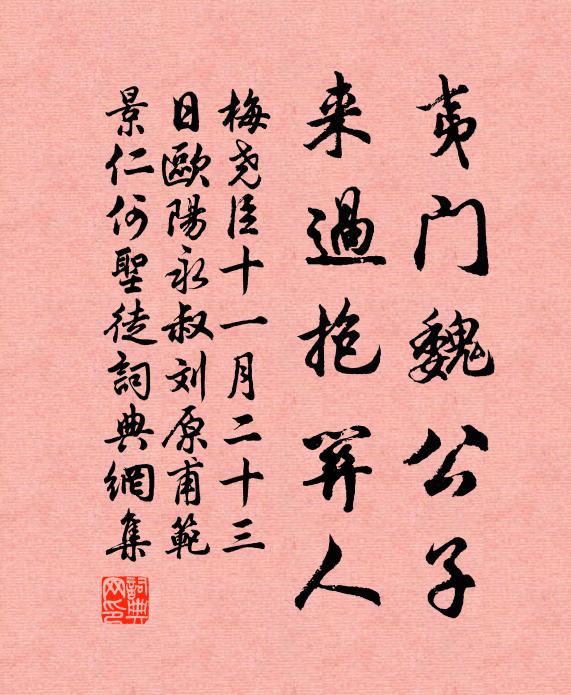 夷门魏公子
来過抱關人
梅尧臣十一月二十三
日歐陽永叔刘原甫範
景仁何聖徒詞典網集
詞典网印